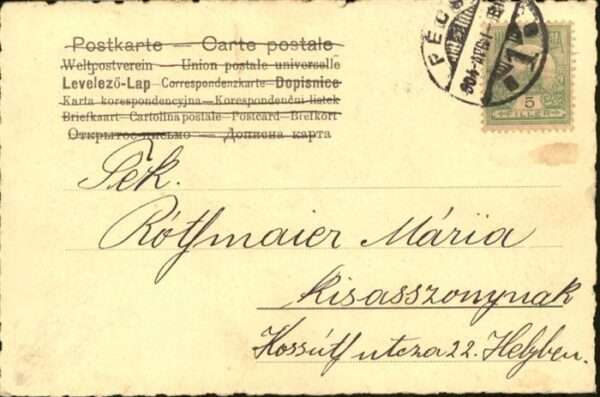 Postkarte — Carte postale
Weltpostverein — Union postale universelle
Levelező-Lap — Correspondenzkarte — Dopisnice
Karta korespondencyjna — Korespondenčni listek
Briefkaart — Cartolina postale — Postcard — Brefkort
Открытое письмо — Дописна карта
PÉCS
904
1
5
FILLÉR
Tek.
Róthmaier Mária
kisasszonynak
Kossúth utcza 22. Helyben.